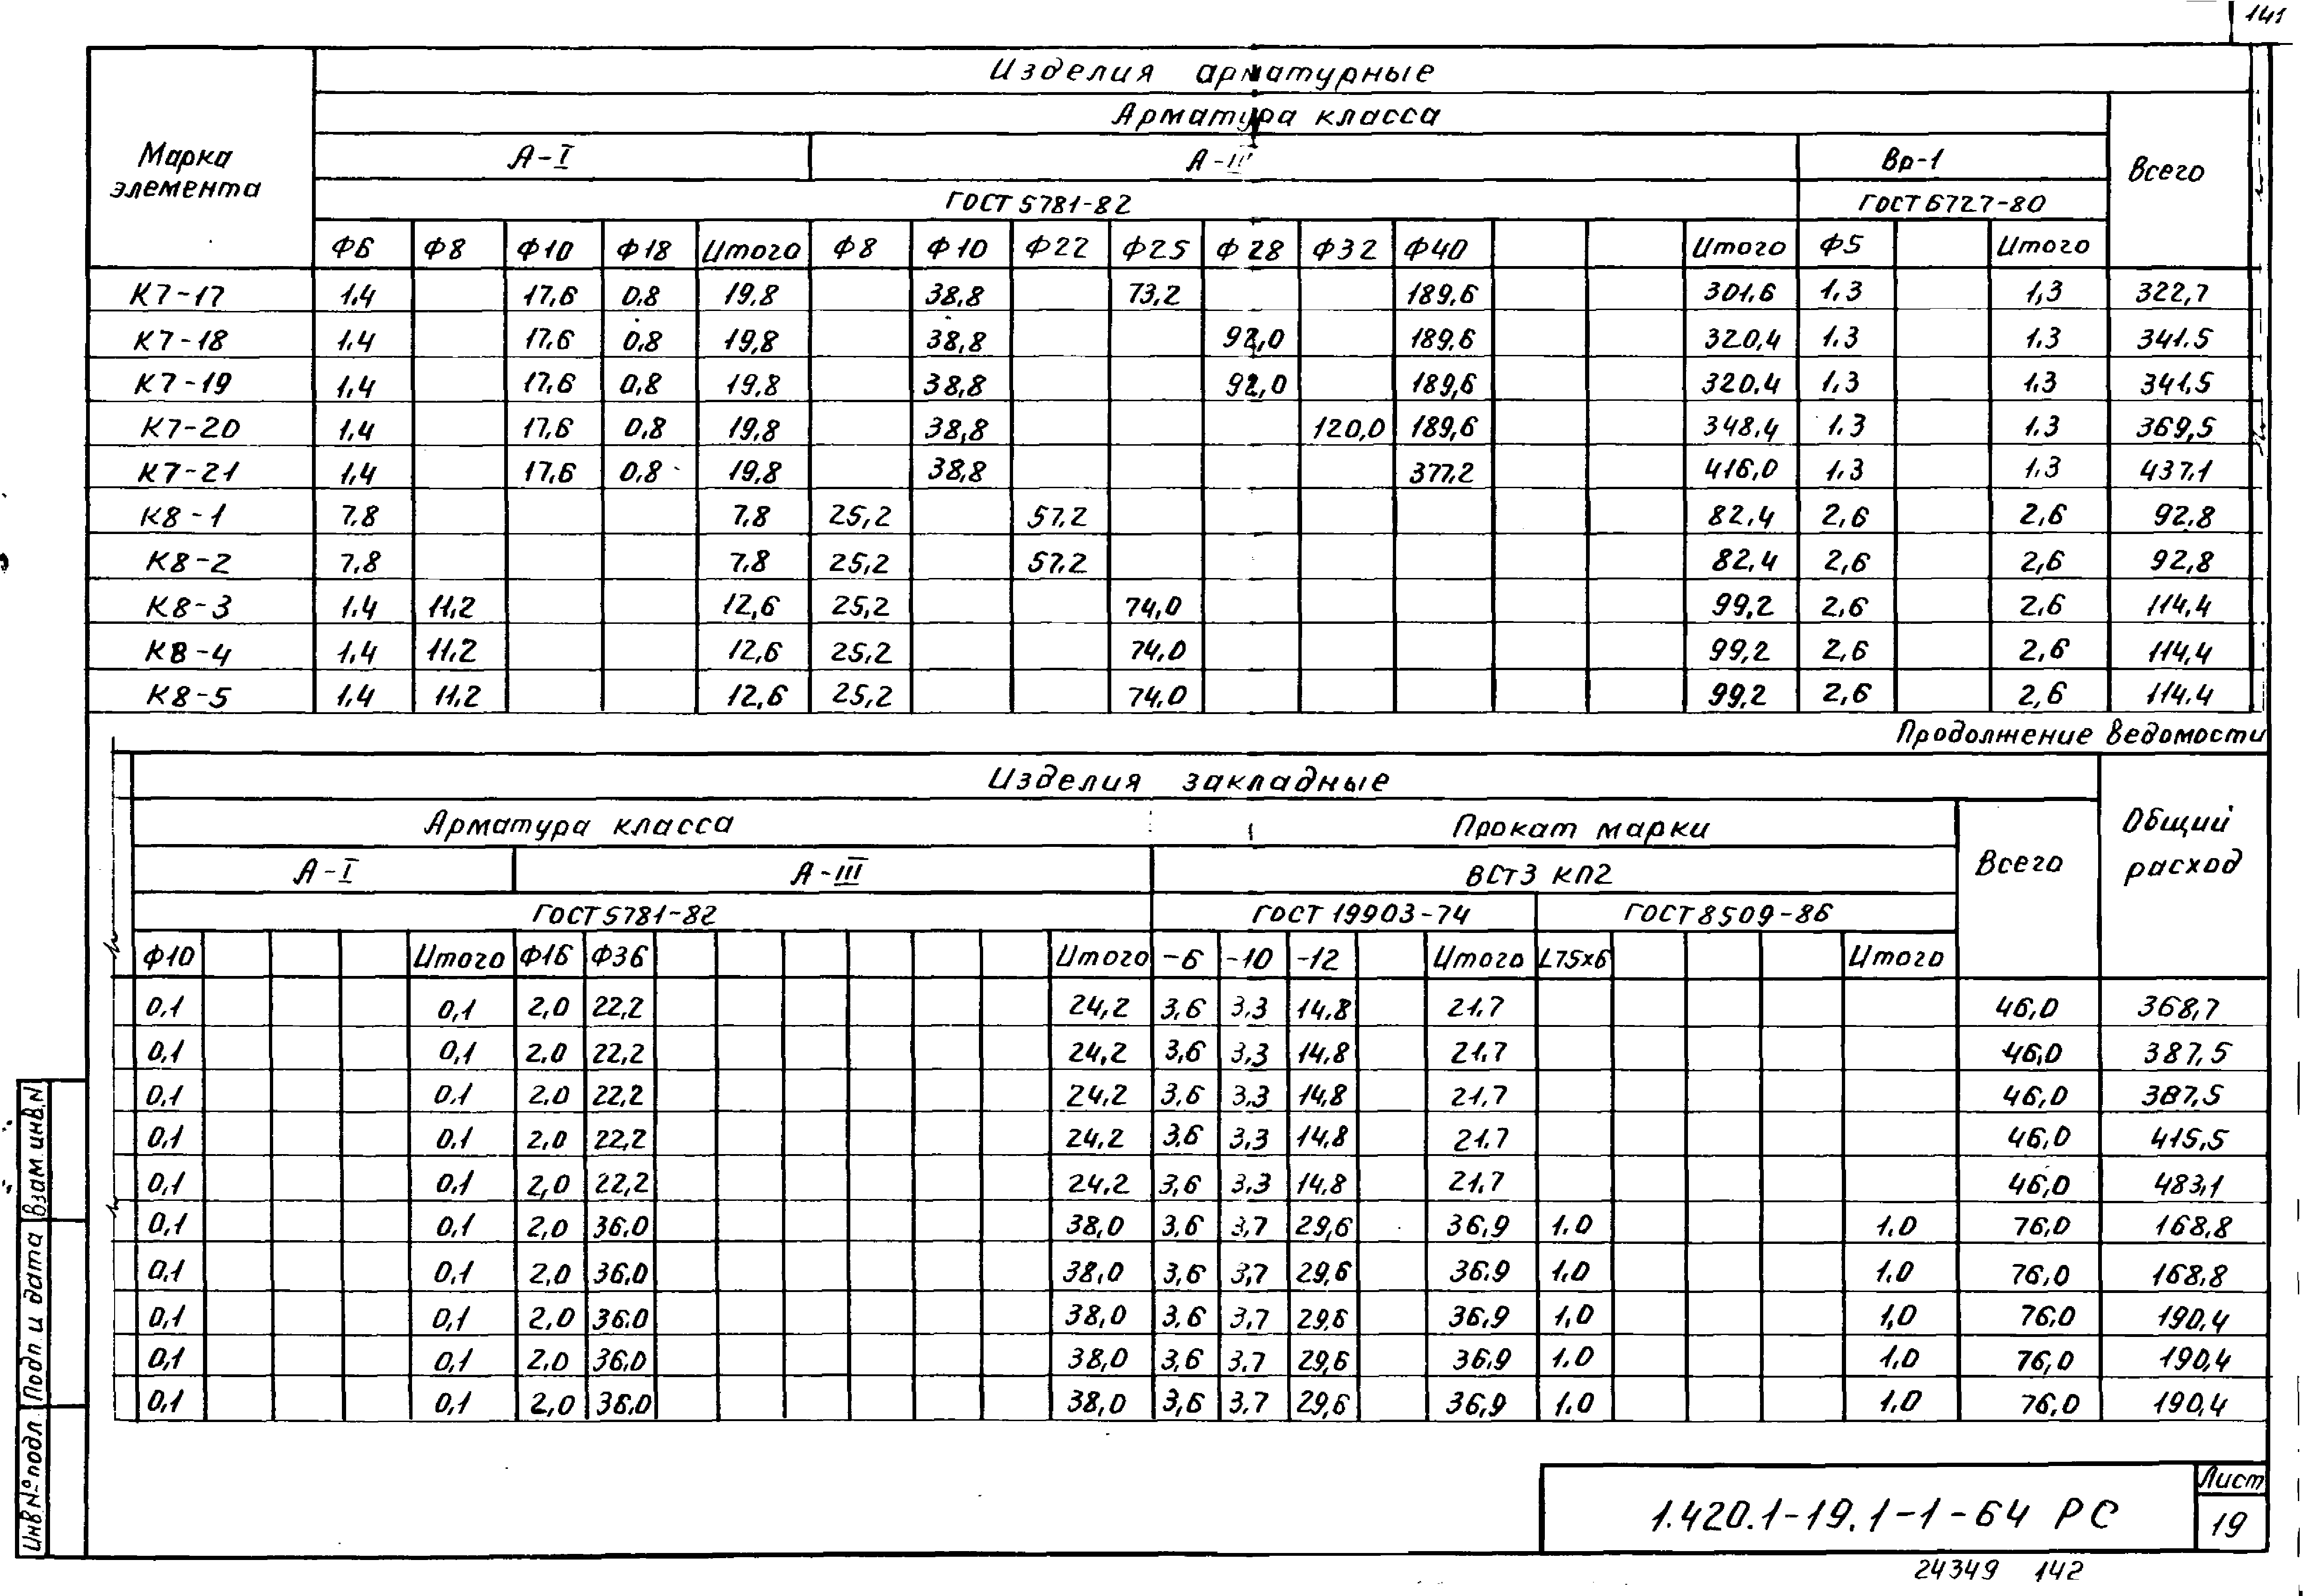 141
Изделия арматурные
Арматура класса
Марка элемента
А-I А-III Вр-1 Всего
ГОСТ 5781-82 ГОСТ 6727-80
Ф6 Ф8 Ф10 Ф18 Итого Ф8 Ф10 Ф22 Ф25 Ф28 Ф32 Ф40 Итого Ф5 Итого
К7-17 1.4 17,6 0,8 19,8 38,8 73,2 189,6 301,6 1,3 1,3 322,7
К7-18 1.4 17.6 0,8 19,8 38,8 92,0 189.6 320,4 1.3 1.3 341.5
К7-19 1,4 17,6 0,8 19,8 38,8 92,0 189,6 320,4 1,3 1.3 341,5
К7-20 1,4 17,6 0,8 19,8 38,8 120,0 189,6 348,4 1.3 1.3 369,5
К7-21 1,4 17,6 0,8 19,8 38,8 377,2 416,0 1,3 1,3 437,1
К8-1 7,8 7,8 25,2 57,2 82,4 2,6 2,6 92,8
К8-2 7,8 7,8 25,2 57,2 82,4 2,6 2,6 92,8
К8-3 1,4 11,2 12,6 25,2 74,0 99,2 2,6 2,6 114,4
К8-4 1,4 11,2 12,6 25,2 74,0 99,2 2,6 2,6 114,4
К8-5 1,4 11,2 12,6 25,2 74,0 99,2 2,6 2,6 114,4
Продолжение ведомости
Изделия закладные
Арматура класса Прокат марки Общий расход
А-I А-III ВСт3 кп2 Всего
ГОСТ 5781-82 ГОСТ 19903-74 ГОСТ 8509-86
Ф10 Итого Ф16 Ф36 Итого -6 -10 -12 Итого L75х6 Итого
0,1 0,1 2,0 22,2 24,2 3,6 3,3 14,8 21.7 46,0 368,7
0,1 0,1 2.0 22,2 24,2 3,6 3,3 14,8 21.7 46,0 387,5
0,1 0.1 2.0 22,2 24,2 3,6 3,3 14,8 21.7 46,0 387,5
0,1 0.1 2,0 22,2 24,2 3,6 3,3 14,8 21.7 46,0 415,5
0,1 0.1 2,0 22,2 24,2 3,6 3,3 14,8 21.7 46,0 483,1
0,1 0,1 2,0 36,0 38,0 3,6 3,7 29,6 36,9 1.0 1.0 76,0 168,8
0,1 0,1 2,0 36,0 38,0 3,6 3,7 29,6 36,9 1,0 1.0 76,0 168,8
0,1 0,1 2,0 36,0 38,0 3,6 3,7 29,6 36,9 1,0 1,0 76,0 190,4
0,1 0,1 2,0 36,0 38,0 3,6 3.7 29,6 36,9 1.0 1,0 76,0 190,4
0,1 0,1 2,0 36,0 38,0 3,6 3.7 29,6 36,9 1.0 1.0 76,0 190,4
Взам.инв.N
Подп.и дата
Инв.N°подл.
1.420.1-19.1-1-64 РС
Лист
19
24349 142